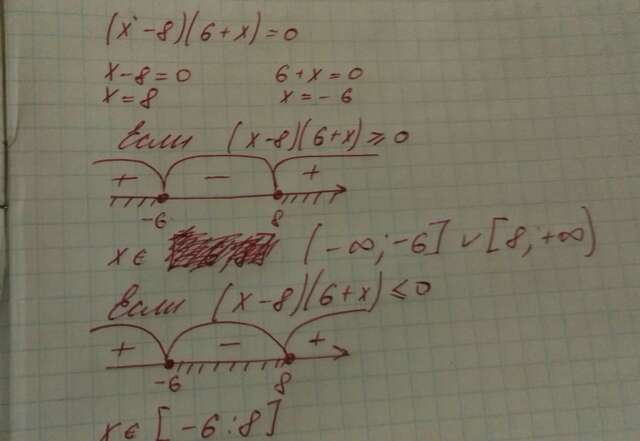 (x-8)(6+x)=0
x-8=0 6+x=0
x=8 x=-6
Если (x-8)(6+x)⩾0
+ - +
-6 8
x∈ (-∞;-6]∨[8;+∞)
Если (x-8)(6+x)⩽0
+ - +
-6 8
x∈[-6:8]